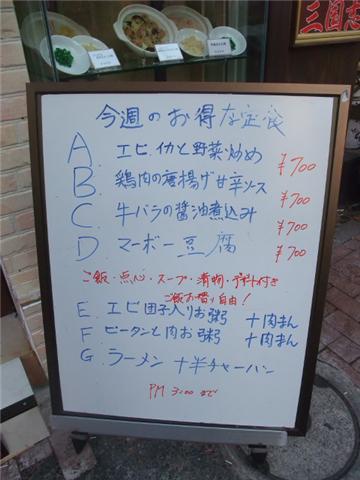 三国志
今週のお得な定食
A. エビ、イカと野菜炒め ¥700
B. 鶏肉の唐揚げ甘辛ソース ¥700
C. 牛バラの醤油煮込み ¥700
D. マーボー豆腐 ¥700
ご飯・点心・スープ・漬物・デザート付き
ご飯お替り自由!
E. エビ団子入りお粥 +肉まん
F. ピータンと肉お粥 +肉まん
G. ラーメン +半チャーハン
PM 3:00 まで